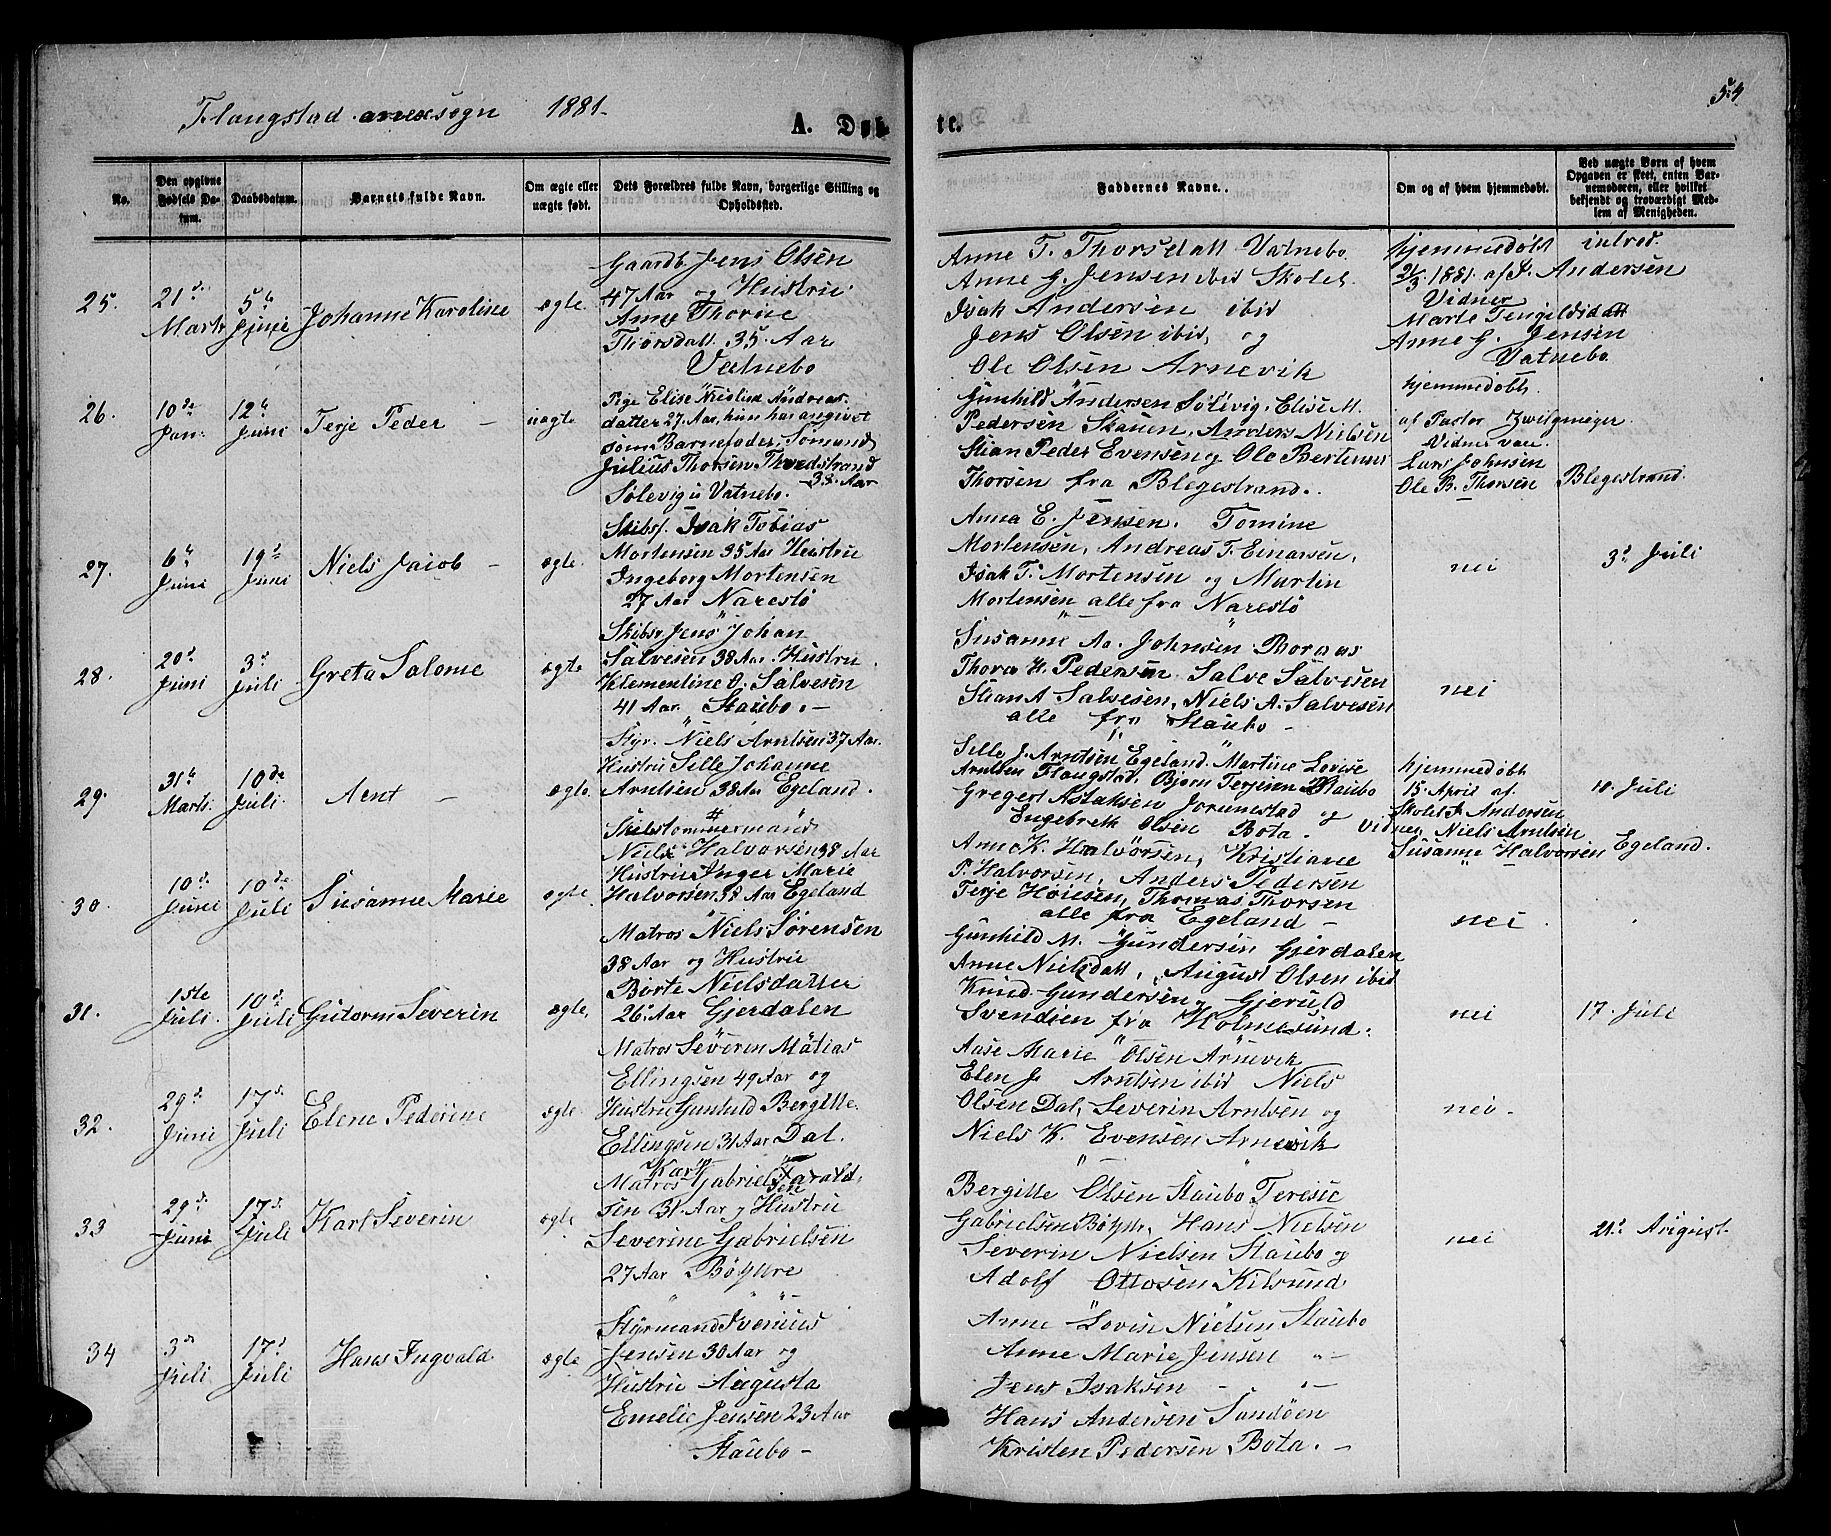 Flangstad anexsogn 1881.
A. Døbte.
54
No.
Den opgivne Fødsels Datum.
Daabsdatum.
Barnets fulde Navn.
Om ægte eller uægte født.
Dets Forældres fulde Navn, borgerlige Stilling og Opholdssted.
Faddernes Navne.
Om og af hvem hjemmedøbt.
Ved uægte Børn af hvem Opgaven er skeet, enten Barnemoderen, eller hvilket bekjendt og troværdigt Medlem af Menigheden.
25.
21 Marts
5 Juni
Johanne Karoline
ægte
Gaardb. Jens Olsen
47 Aar og Hustru
Anne Thorine
Thorsdatt. 35. Aar
Vatnebo
Anne T. Thorsdatt Vatnebo
Anne G. Jensen ibid Skolel.
Isak Andersen ibid
Jens Olsen ibid, og
Ole Olsen Arnevik
hjemmedøbt
21/3 1881. af S. Andersen
Vidner
Marte Tengildsdatt
Anne G. Jensen
Vatnebo
intred.
26.
10de Jan.
12 Juni
Terje Peder —
uægte
Pige Elise Nicoline Andreas-
datter 27 Aar, hun har angivet
som Barnefader Sømand
Julius Thorsen Thvedstrand
38. Aar
Sølevig u Vatnebo.
Gunhild Andersen Sølevig, Elise M.
Pedersen Skauen, Anders Nielsen
Stian Peder Evensen og Ole Bertinus
Thorsen fra Blegestrand.
hjemmedøbt
af Pastor Zwilgmeyer
Vidner vare
Lars Johnsen
Ole B. Thorsen Blegestrand.
27.
6 Juni
19 Juni
Niels Jacob —
ægte.
Skibsf. Isak Tobias
Mortensen 35 Aar Hustru
Ingeborg Mortensen
27 Aar Narestø
Anna E. Jensen. Tomine
Mortensen, Andreas T. Einarsen,
Isak T. Mortensen og Martin
Mortensen alle fra Narestø
nei
3 Juli
28.
20 Juni
3 Juli
Greta Salome
ægte
Skibsr Jens Johan
Salvesen 38 Aar. Hustru
Klementine O. Salvesen
41 Aar Staubo. —
Susanne Aa. Johnsen Boraas
Thora H. Pedersen Salve Salvesen
Stian A Salvesen, Niels A. Salvesen
alle fra Staubo —
nei
29.
31 Marts
10de Juli.
Arnt —
ægte.
Styr. Niels Arntsen 37 Aar.
Hustru Sille Johanne
Arntsen 38 Aar Egeland.
Sille J. Arntsen Egeland. Martine Lovise
Arntsen Flangstad, Bjørn Terjesen Staubo
Gregert Aslaksen Jorunstad og
Engebreth Olsen Bota.
hjemmedøbt
15. April af
Skolel. Andersen
Vidner, Niels Arntsen
Susanne Halvorsen Egeland.
10 Juli
30.
10 Juni
10de Juli
Susanne Marie
ægte
Skibstømmermand
Niels Halvorsen 38 Aar
Hustru Inger Marie
Halvorsen 38 Aar Egeland
Anne K. Halvorsen, Kristiane
P. Halvorsen, Anders Pedersen
Terje Høiesen, Thomas Thorsen
alle fra Egeland —
nei
31.
1ste Juli.
10 Juli
Gutorm Severin
ægte,
Matros Niels Sørensen
38 Aar og Hustru
Børte Nielsdatter
26. Aar Gjerdalen
Gunhild M. Gundersen Gjerdalen
Anne Nielsdatt, August Olsen ibid
Knud Gundersen, Gjeruld
Svendsen fra Holmesund.
nei
17. Juli
32.
29 Juni
17 Juli
Elene Pederine
ægte.
Matros Severin Matias
Ellingsen 49 Aar og
Hustru Gunhild Bergitte
Ellingsen 31 Aar Dal.
Aase Marie Olsen Arnevik
Elen J. Arntsen ibid Niels
Olsen Dal, Severin Arntsen og
Niels K. Evensen Arnevik
nei.
33
29 Juni
17 Juli
Karl Severin
ægte
Matros Karl Gabriel Tarald-
sen 31. Aar og Hustru
Severine Gabrielsen
27 Aar
Bergitte Olsen Staubo Terese
Gabrielsen, Hans Nielsen
Severin Nielsen Staubo og
Adolf Ottosen Kilsund
nei
21 August
34
3 Juli
17 Juli
Hans Ingvald
ægte
Styrmand Ivenius
Jensen 30 Aar og
Hustru Augusta
Emelie Jensen 23 Aar
Staubo —
Anne Lovise Nielsen Staubo
Anne Marie Jensen " —
Jens Isaksen — " —
Hans Andersen Sandøen
Kristen Pedersen Bota. —